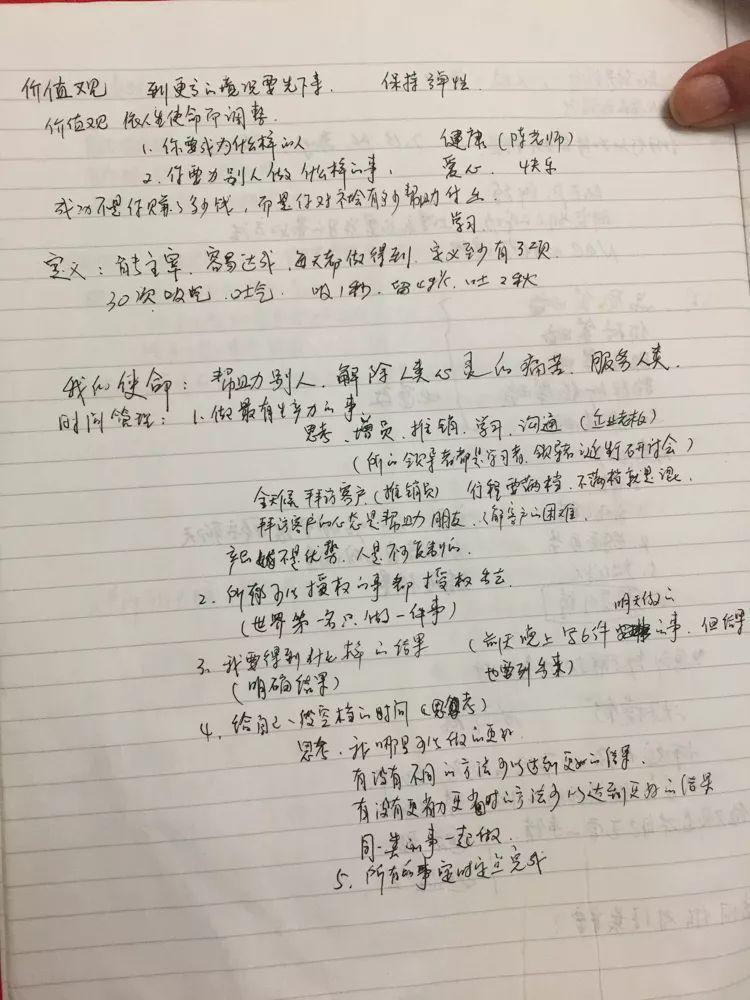 价值观 到更高的境况要先下来. 保持弹性.
价值观 依人生使命而调整.
1. 你要成为什么样的人 健康(陈老师)
2. 你要为别人做什么样的事, 爱心、快乐
成功不是你赚了多少钱, 而是你对社会有多少帮助付出.
学习
定义: 自己主宰. 容易达成, 每天都做得到, 定义至少有3项.
30次 吸气. 吐气. 吸1秒. 留4秒. 吐2秒
我们使命: 帮助别人, 解除人类心灵的痛苦. 服务人类.
时间管理: 1. 做最有生产力的事
思考、增员、推销、学习、沟通 (企业老板)
(所有领导者都是学习者, 领导者必进行研讨会)
全天候拜访客户(推销员) 行程要满档, 不满档就是混.
拜访客户的心态是帮助朋友, 了解客户的困难.
产品不是优势, 人是不可复制的.
2. 所有可以授权的事都授权出去
(世界第一名只做一件事)
3. 我要得到什么样的结果 (前天晚上写6件明天做的事, 但结果
(明确结果) 也要列出来)
4. 给自己一段空档的时间 (思考)
思考, 我哪里可以做的更好
有没有不同的方法可以达到更好的结果.
有没有更省力更省时的方法可以达到更好的结果
同一类的事一起做.
5. 所有的事定时定点完成